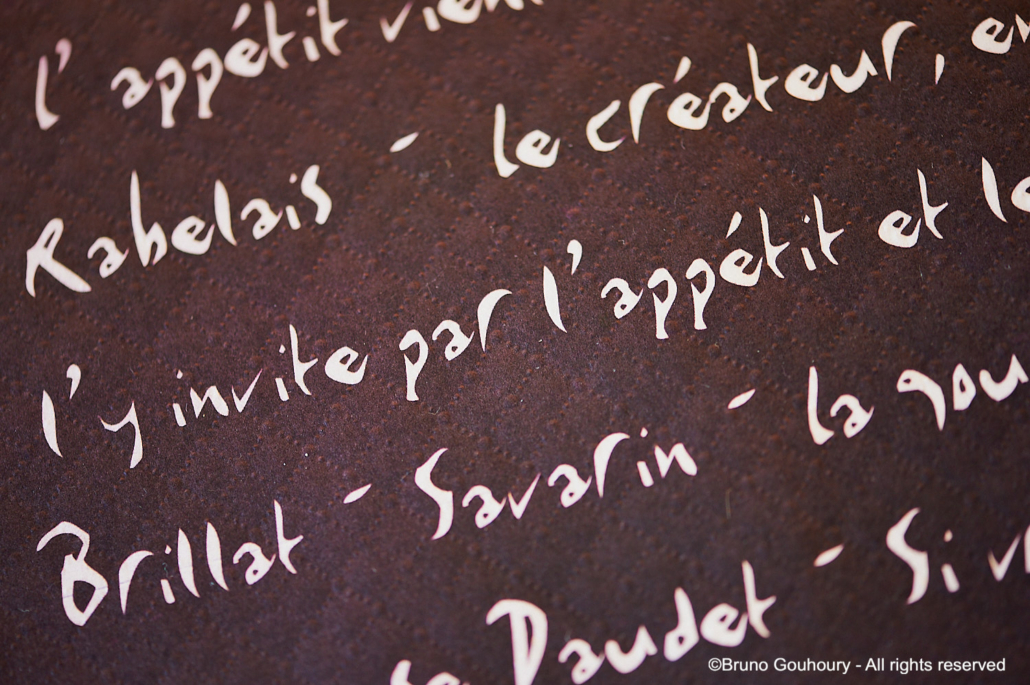 l'appétit vient
Rabelais - le créateur, en
l'y invite par l'appétit et le
Brillat - Savarin - la gou
Daudet - Si
©Bruno Gouhoury - All rights reserved